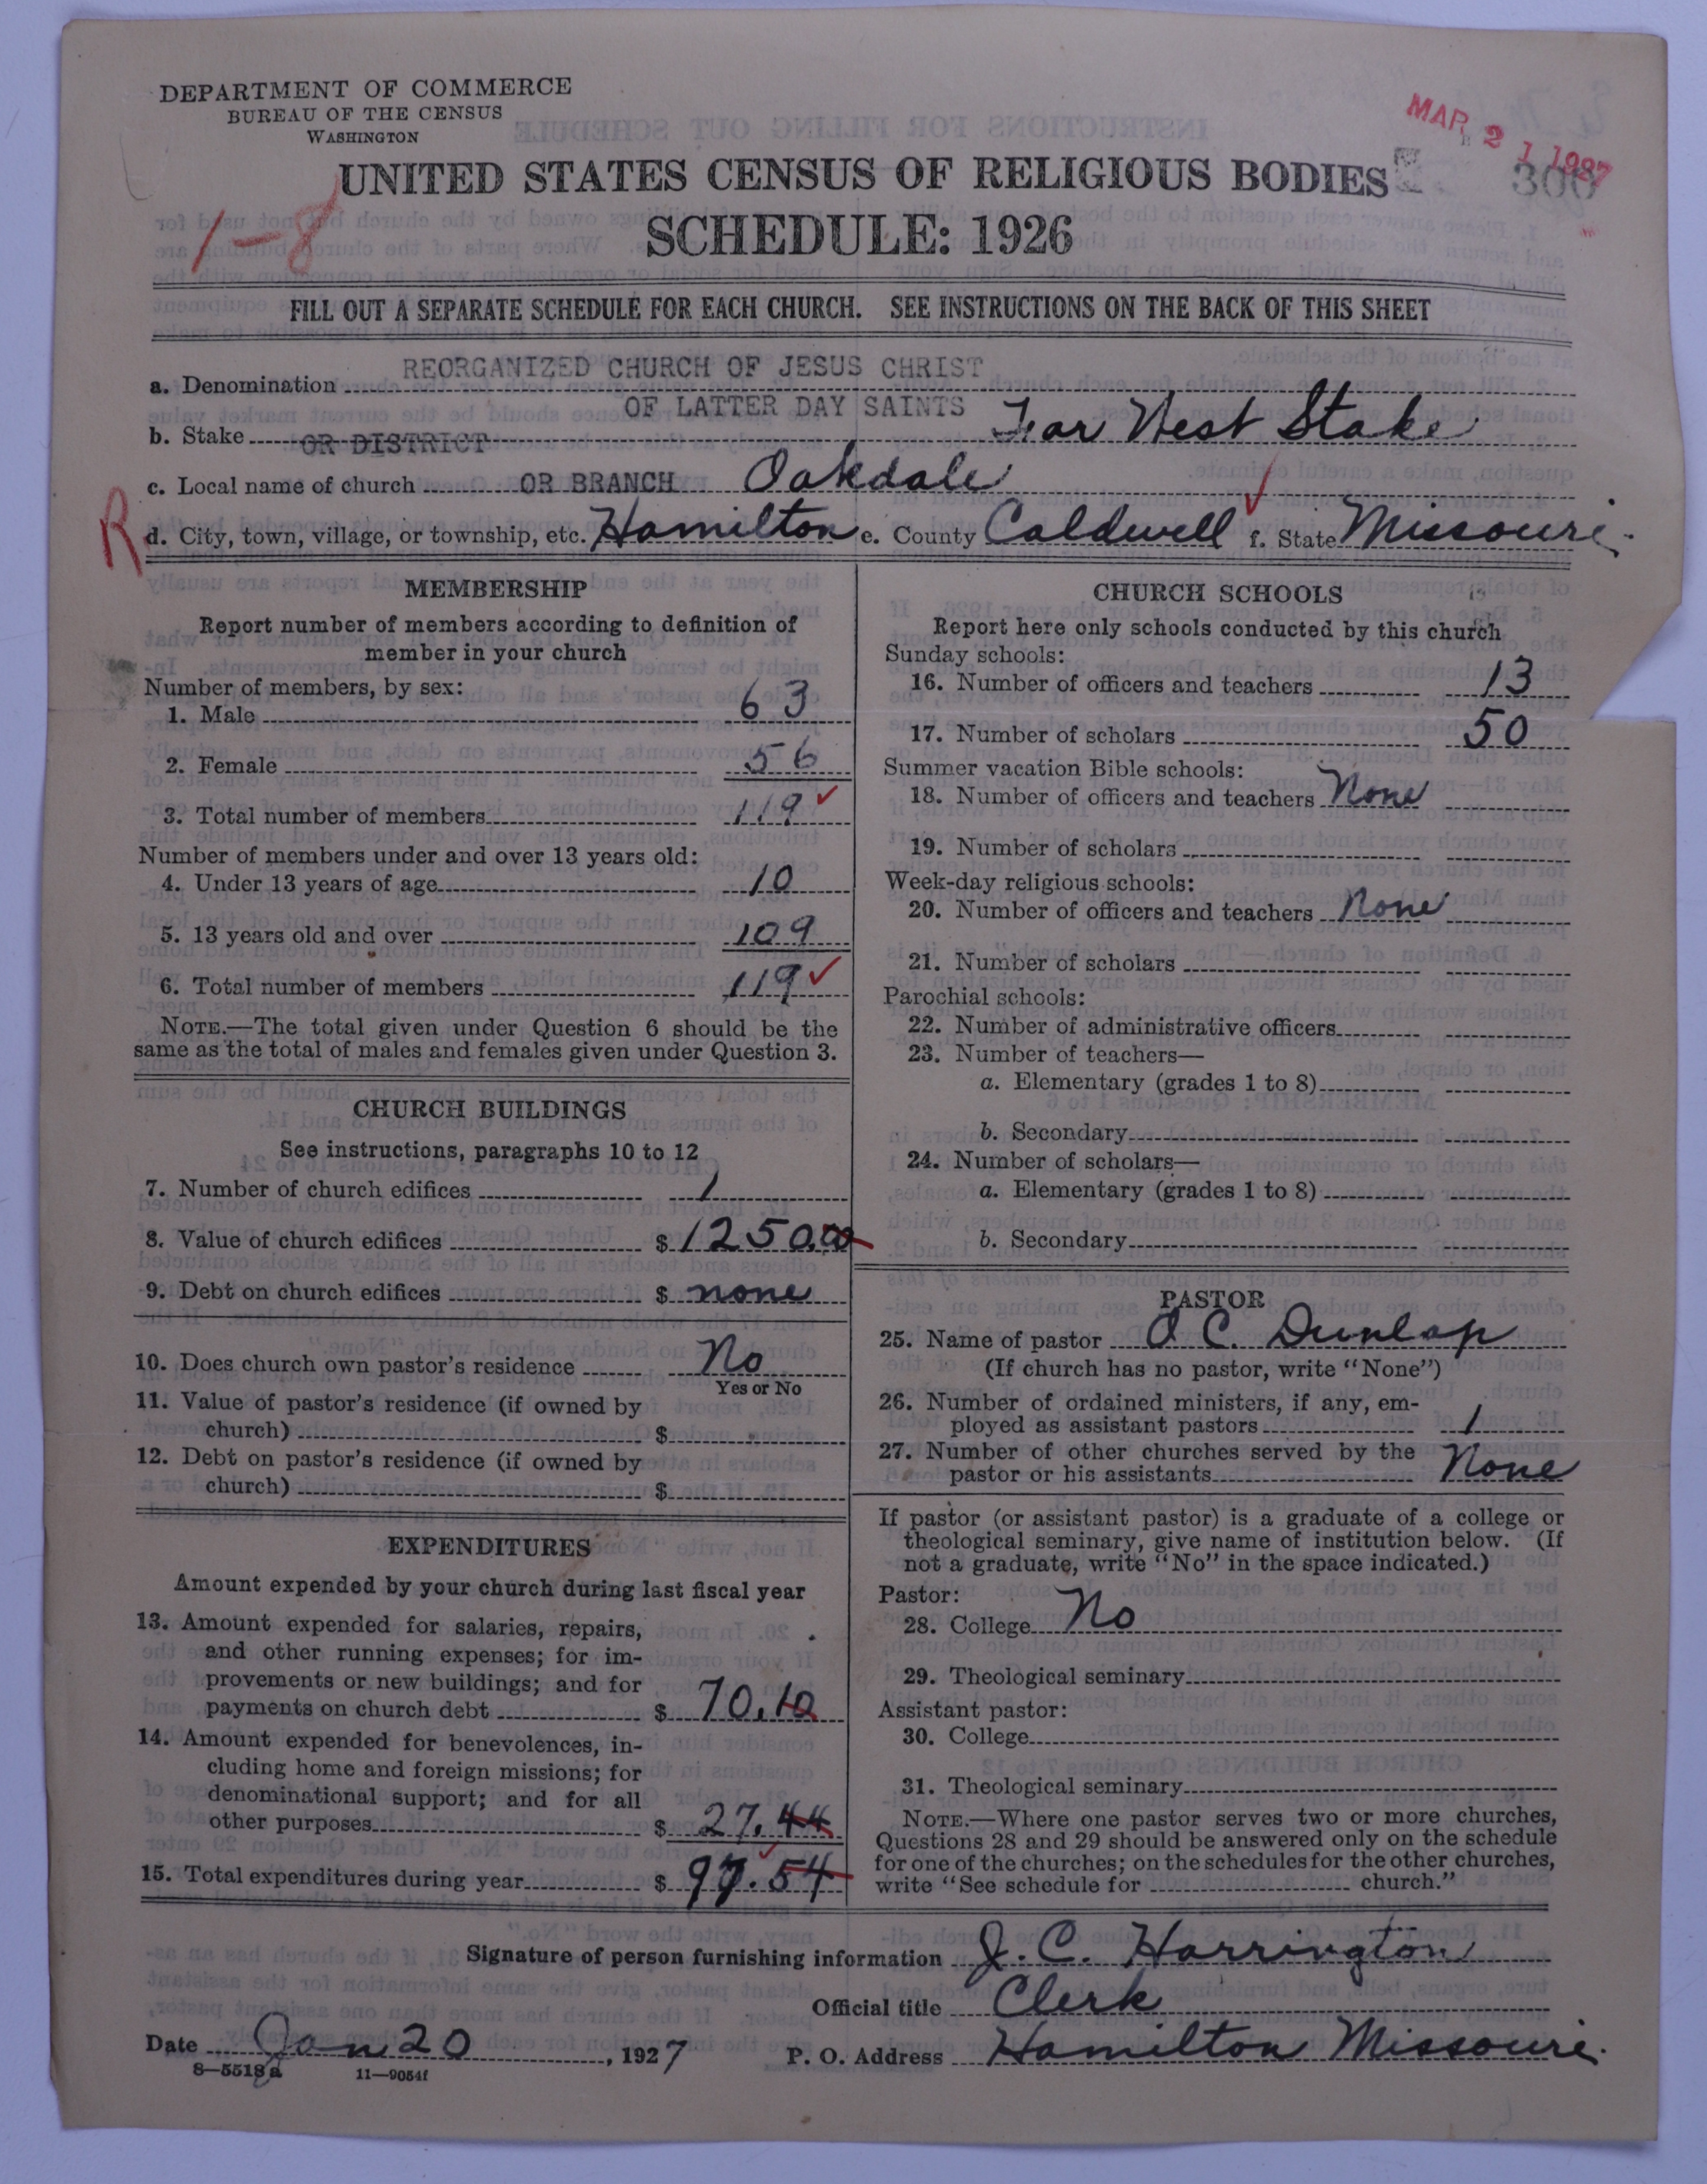 DEPARTMENT OF COMMERCE
BUREAU OF THE CENSUS
WASHINGTON
MAR 21 1927
300
UNITED STATES CENSUS OF RELIGIOUS BODIES
SCHEDULE: 1926
1-8
FILL OUT A SEPARATE SCHEDULE FOR EACH CHURCH. SEE INSTRUCTIONS ON THE BACK OF THIS SHEET
a. Denomination REORGANIZED CHURCH OF JESUS CHRIST
OF LATTER DAY SAINTS
b. Stake OR DISTRICT Far West Stake
c. Local name of church OR BRANCH Oakdale
R
d. City, town, village, or township, etc. Hamilton e. County Caldwell f. State Missouri.
MEMBERSHIP
Report number of members according to definition of
member in your church
Number of members, by sex:
1. Male 63
2. Female 56
3. Total number of members 119
Number of members under and over 13 years old:
4. Under 13 years of age 10
5. 13 years old and over 109
6. Total number of members 119
NOTE.—The total given under Question 6 should be the
same as the total of males and females given under Question 3.
CHURCH BUILDINGS
See instructions, paragraphs 10 to 12
7. Number of church edifices 1
8. Value of church edifices $ 1250.00
9. Debt on church edifices $ none
10. Does church own pastor's residence No
Yes or No
11. Value of pastor's residence (if owned by
church) $
12. Debt on pastor's residence (if owned by
church) $
EXPENDITURES
Amount expended by your church during last fiscal year
13. Amount expended for salaries, repairs,
and other running expenses; for im-
provements or new buildings; and for
payments on church debt $ 70.10
14. Amount expended for benevolences, in-
cluding home and foreign missions; for
denominational support; and for all
other purposes $ 27.44
15. Total expenditures during year $ 97.54
CHURCH SCHOOLS
Report here only schools conducted by this church
Sunday schools:
16. Number of officers and teachers 13
17. Number of scholars 50
Summer vacation Bible schools:
18. Number of officers and teachers None
19. Number of scholars
Week-day religious schools:
20. Number of officers and teachers None
21. Number of scholars
Parochial schools:
22. Number of administrative officers
23. Number of teachers—
a. Elementary (grades 1 to 8)
b. Secondary
24. Number of scholars—
a. Elementary (grades 1 to 8)
b. Secondary
PASTOR
25. Name of pastor O C. Dunlap
(If church has no pastor, write "None")
26. Number of ordained ministers, if any, em-
ployed as assistant pastors 1
27. Number of other churches served by the
pastor or his assistants None
If pastor (or assistant pastor) is a graduate of a college or
theological seminary, give name of institution below. (If
not a graduate, write "No" in the space indicated.)
Pastor:
28. College No
29. Theological seminary
Assistant pastor:
30. College
31. Theological seminary
NOTE.—Where one pastor serves two or more churches,
Questions 28 and 29 should be answered only on the schedule
for one of the churches; on the schedules for the other churches,
write "See schedule for church."
Signature of person furnishing information J. C. Harrington
Official title Clerk
Date Jan 20, 1927 P. O. Address Hamilton Missouri.
8—5518a 11—9054f